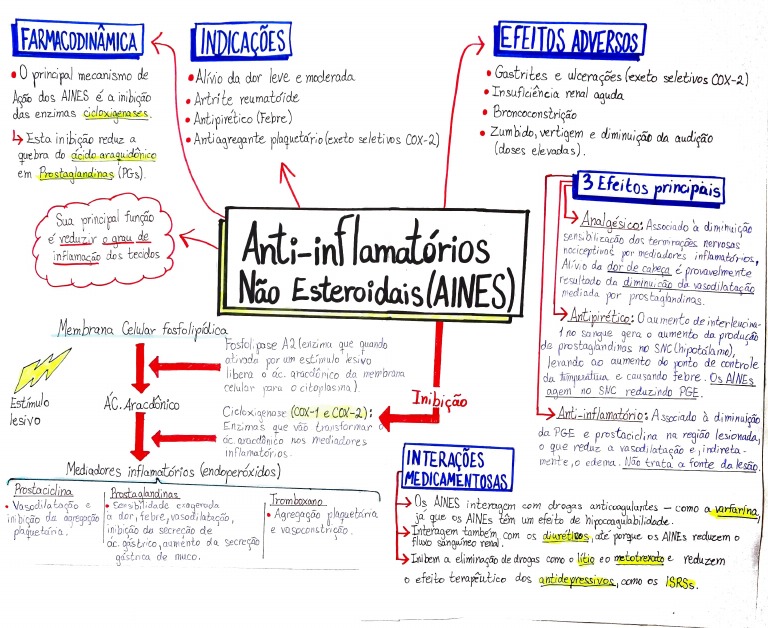 FARMACODINÂMICA
• O principal mecanismo de
Ação dos AINES é a inibição
das enzimas cicloxigenases.
↳ Esta inibição reduz a
quebra do ácido araquidônico
em Prostaglandinas (PGs).
INDICAÇÕES
• Alívio da dor leve e moderada
• Artrite reumatoíde
• Antipirético (Febre)
• Antiagregante plaquetário (exeto seletivos COX-2)
EFEITOS ADVERSOS
• Gastrites e ulcerações (exeto seletivos COX-2)
• Insuficiência renal aguda
• Broncoconstrição
• Zumbido, vertigem e diminuição da audição
(doses elevadas).
Sua principal função
é reduzir o grau de
inflamação dos tecidos
Anti-inflamatórios
Não Esteroidais (AINES)
3 Efeitos principais
Analgésico: Associado à diminuição
sensibilização das terminações nervosas
nociceptivas por mediadores inflamatórios,
Alívio da dor de cabeça é provavelmente
resultado da diminuição da vasodilatação
mediada por prostaglandinas.
Antipirético: O aumento de interleucina-
1 no sangue gera o aumento da produção
de prostaglandinas no SNC (hipotálamo),
levando ao aumento do ponto de controle
da temperatura e causando febre. Os AINEs
agem no SNC reduzindo PGE.
Anti-inflamatório: Associado à diminuição
da PGE e prostaciclina na região lesionada,
o que reduz a vasodilatação e, indireta-
mente, o edema. Não trata a fonte da lesão.
Membrana Celular fosfolipídica
Estímulo
lesivo
Fosfolipase A2 (enzima que quando
ativada por um estímulo lesivo
libera o ác. aracdônico da membrana
celular para o citoplasma).
ÁC. Aracdônico
Inibição
Cicloxigenase (COX-1 e COX-2):
Enzimas que vão transformar o
ác. aracdônico nos mediadores
inflamatórios.
Mediadores inflamatórios (endoperóxidos)
Prostaciclina
• Vasodilatação e
inibição da agregação
plaquetária.
Prostaglandinas
• Sensibilidade exagerada
a dor, febre, vasodilatação,
inibição da secreção de
ác. gástrico, aumento da secreção
gástrica de muco.
Tromboxano
• Agregação plaquetária
e vasoconstricão.
INTERAÇÕES
MEDICAMENTOSAS
Os AINES interagem com drogas anticoagulantes – como a varfarina,
já que os AINEs têm um efeito de hipocoagulabilidade.
Interagem também com os diuréticos, até porque os AINEs reduzem o
fluxo sanguíneo renal.
Inibem a eliminação de drogas como o lítio e o metotrexato e reduzem
o efeito terapêutico dos antidepressivos, como os ISRSs.